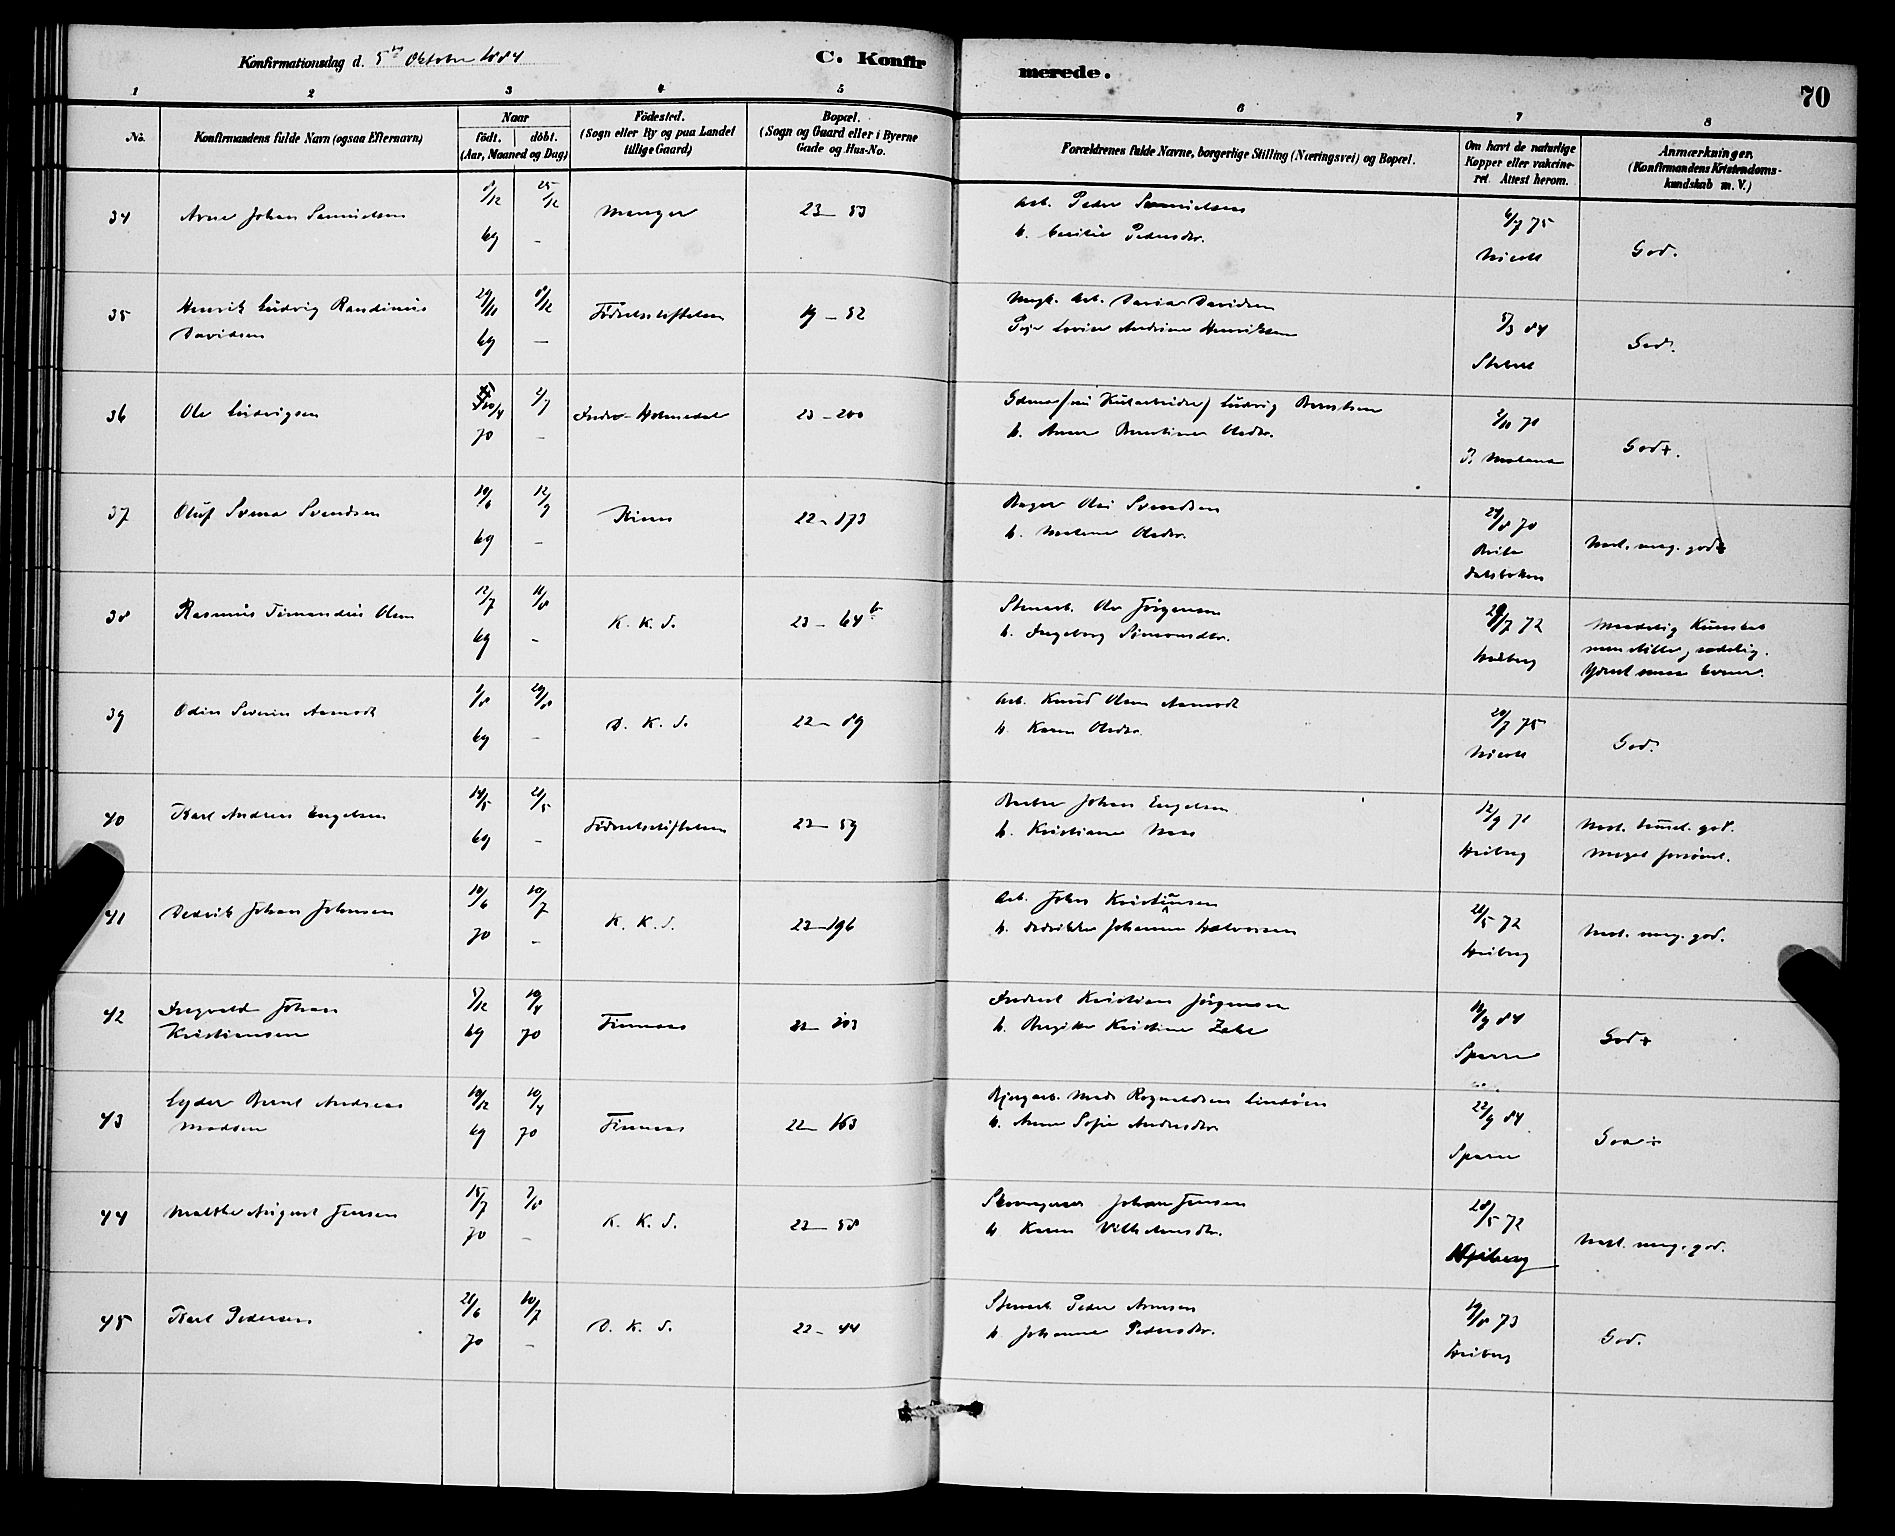 Konfirmationsdag d. 5te Oktober 1884
C. Konfirmerede.
70
1 2 3 4 5 6 7 8
No.
Konfirmandens fulde Navn (ogsaa Efternavn)
Naar
födt. döbt.
(Aar, Maaned og Dag)
Födested.
(Sogn eller By og paa Landet
tillige Gaard)
Bopæl.
(Sogn og Gaard eller i Byerne
Gade og Hus-No.
Forældrenes fulde Navne, borgerlige Stilling (Næringsvei) og Bopæl.
Om havt de naturlige
Kopper eller vakcine-
ret. Attest herom.
Anmærkninger.
(Konfirmandens Kristendoms-
kundskab m. V.)
34 Arne Johan Samuelsen 8/12 69 25/12 - Manger 23 - 53
Arb. Peder Samuelsen
h. Cecilie Pedersdtr.
6/7 75
Nicoll
God.
35 Henrik Ludvig Randinius
Davidsen
29/11 69 8/12 - Födselsstiftelsen 19 - 52
Ungk. Arb. Davidsen
Pige Lovise Andrine Henriksen
5/3 84
God.
36 Ole Ludvigsen 70 2/7 - Indre-Holmedal 23 - 200
Ludvig Berntsen
h. Anne Berntine Olsdtr.
2/10 71
God.
37 Oluf Svend Svendsen 19/6 69 12/9 - Kinn 22 - 173
Bager Ole Svendsen
h. Olsdtr.
70
Nest. meg. god
38 Rasmus Fernandus Olsen 12/7 69 11/8 - K. K. S. 23 - 64 b
Stenarb. Ole Jörgensen
h. Ingeborg Simonsdtr.
72
Heiberg
Maadelig Kundskab
men stille, sædelig.
39 Odin Severin Aamodt 2/8 69 29/8 - D. K. S. 22 - 89
Arb. Knud Olsen Aamodt
h. Karen Olsdtr.
20/7 75
Nicoll
God.
40 Karl Andreas Engelsen 14/5 69 21/5 - Födselsstiftelsen 22 - 59
Johan Engelsen
h. Kristiane
12/9 71
Heiberg
Nest. god.
Meget forsömt.
41 Dedrik Johan Johnsen 19/6 70 10/7 - K. K. S. 22 - 196
Arb. John Kristiansen
h. Johanne Halvorsen
28/5 72
Heiberg
Nest. meg. god.
42 Ingvald Johan
Kristiansen
5/12 69 10/4 70 Finnaas 22 - 203
Kristian Jörgensen
h. Birgitte Kristine
84
Sparre
God
43 Lyder Bernt Andreas
Madsen
10/12 69 10/4 70 Finnaas 22 - 163
Mads Rognaldsen Lindöen
h. Anne Sofie Andersdtr.
22/9 84
Sparre
God
44 Malthe August Jensen 15/7 70 7/8 - K. K. S. 22 - 58
Skomager Johan Jensen
h. Karen Vilhelmsdtr.
28/5 72
Heiberg
Nest. meg. god.
45 Karl Pedersen 21/6 70 10/7 - D. K. S. 22 - 44
Stenarb. Peder Arnesen
h. Johanne Pedersdtr.
19/8 73
Heiberg
God.